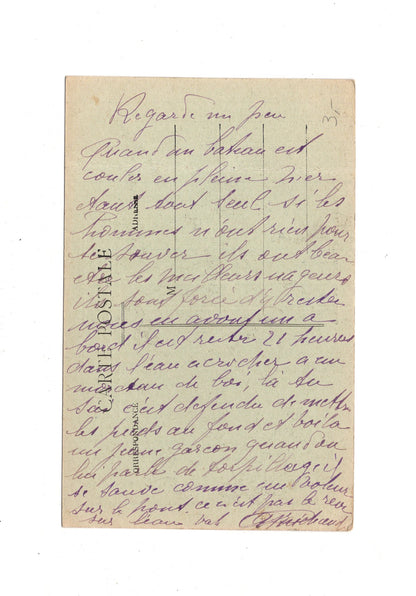 Regarde un peu
Quand un bateau est
couler en pleine mer
étant tout seul si les
hommes n'ont rien pour
se sauver ils ont beau
être les meilleurs nageurs
ils sont forcé d'y rester
nous en avons un a
bord il est rester 21 heures
dans l'eau accrocher a un
morceau de bois, là tu
sais c'est defendu de mettre
les pieds au fond et voila
un jeune garçon quand on
lui parle de torpillage il
se sauve comme un voleur
sur le pont ce n'est pas le rêve
sur l'eau va!
CARTE POSTALE
CORRESPONDANCE
ADRESSE
M
3,-